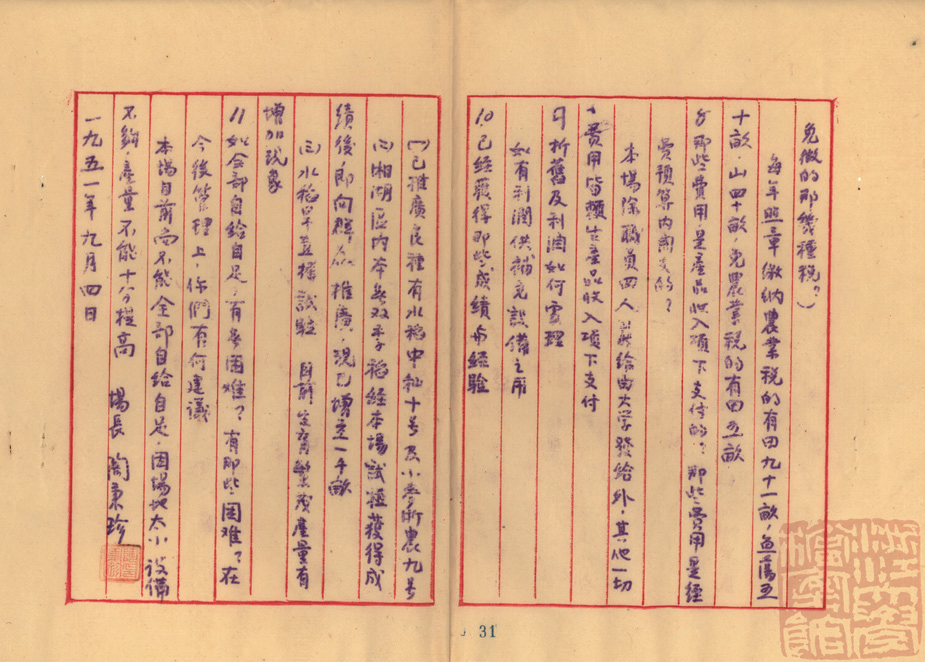 免徵的那幾種稅？）
每年照章繳納農業稅的有田九十一畝，魚蕩五
十畝，山四十畝，免農業稅的有田五畝
8 那些費用，是產品收入項下支付的？那些費用是經
費預算內開支的？
本場除職員四人薪給由大学發給外，其他一切
費用皆賴生產品收入項下支付
9 折舊及利潤如何處理
如有利潤供補充設備之用
10 已經獲得那些成績与經驗
(一)已推廣良種有水稻中籼十号及小麥浙農九号
(二)湘湖區内本無双季稻經本場試種獲得成
績後，即向群众推廣，現已增至一千畝
(三)水稻旱直播試驗 目前生育繁茂產量有
增加現象
11 如全部自給自足，有無困难？有那些困难？在
今後管理上，你們有何建議
本場目前尚不能全部自給自足，因場地太小設備
不夠，產量不能十分提高 場長 陶秉珍
一九五一年九月四日
31